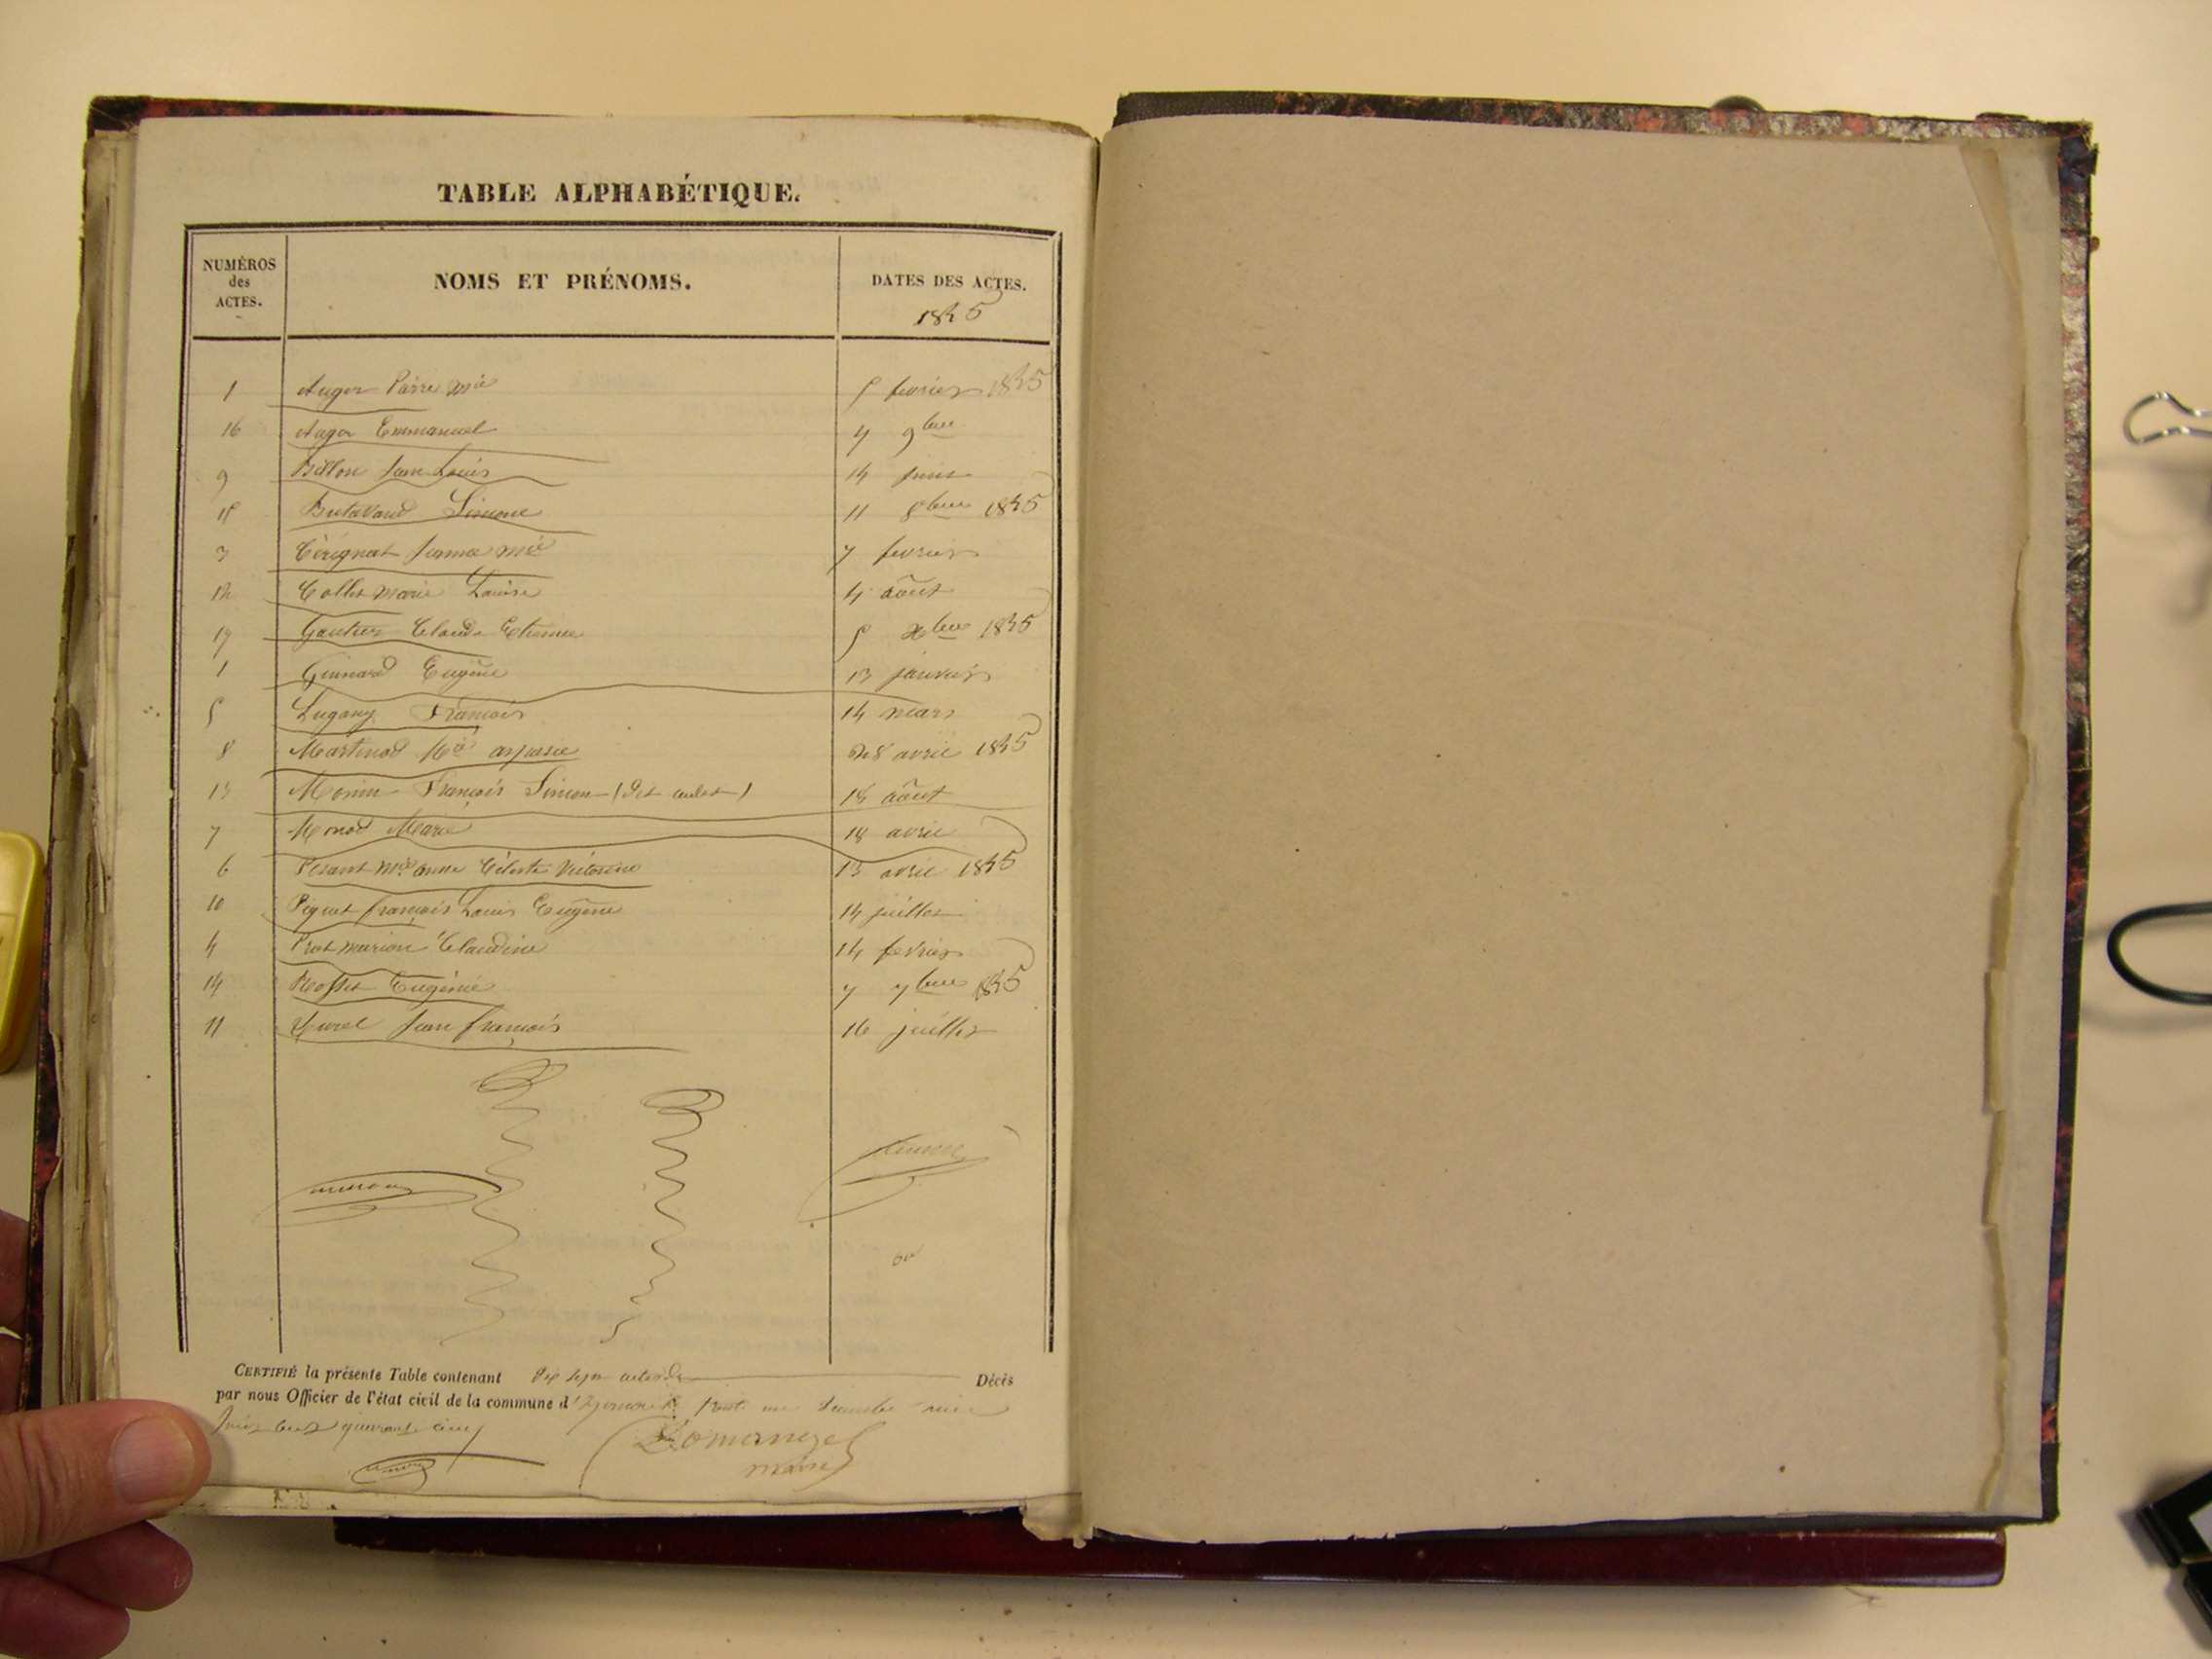 TABLE ALPHABÉTIQUE.
NUMÉROS des ACTES.
NOMS ET PRÉNOMS.
DATES DES ACTES.
1845
1 Auger Pierre Mie 5 fevrier 1845
16 Auger Emmanuel 4 9bre
9 Billon Jean Louis 14 juin
15 Butavand Simone 11 8bre 1845
3 Cérignat Jeanne Mie 7 fevrier
12 Collet Marie Louise 4 août
17 Gautier Claude Etienne 5 xbre 1845
1 Guinard Eugène 13 janvier
5 Lugany François 14 mars
8 Martinod Mie aspasie 28 avril 1845
13 Monin François Simon 18 août
7 Monod Marie 18 avril
6 Pesant Mie anne Céleste Victorine 13 avril 1845
10 Piquet françois Louis Eugène 14 juillet
4 Prost marion Claudine 14 fevrier
14 Rosset Eugénie 7 7bre 1845
11 Jean françois 16 juillet
CERTIFIÉ la présente Table contenant dix sept actes de Décès
par nous Officier de l'état civil de la commune d' trente un decembre mil
huit cent quarante cinq
maire